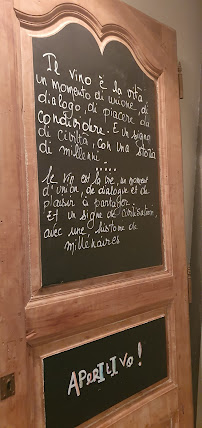 Il vino è la vita:
un momento di unione, di
dialogo, di piacere da
condividere. È un segno
di civiltà, con una storia
di millenni.
.....
Le vin est la vie, un moment
d'union, de dialogue et de
plaisir à partager.
Et un signe de civilisation,
avec une histoire de
millenaires
APERITIVO!